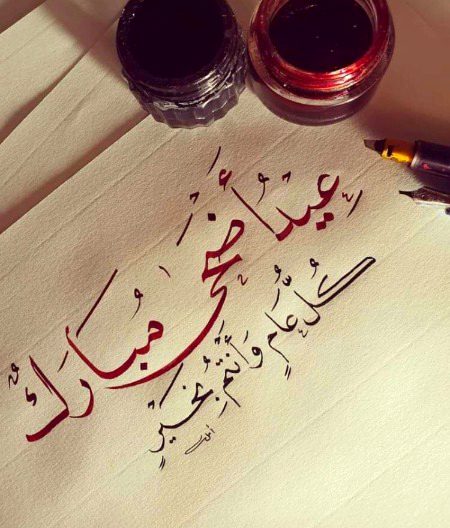 عِيْدُ أَضْحَى مُبَارَكٌ
كُلُّ عَامٍ وَأَنْتُمْ بِخَيْرٍ